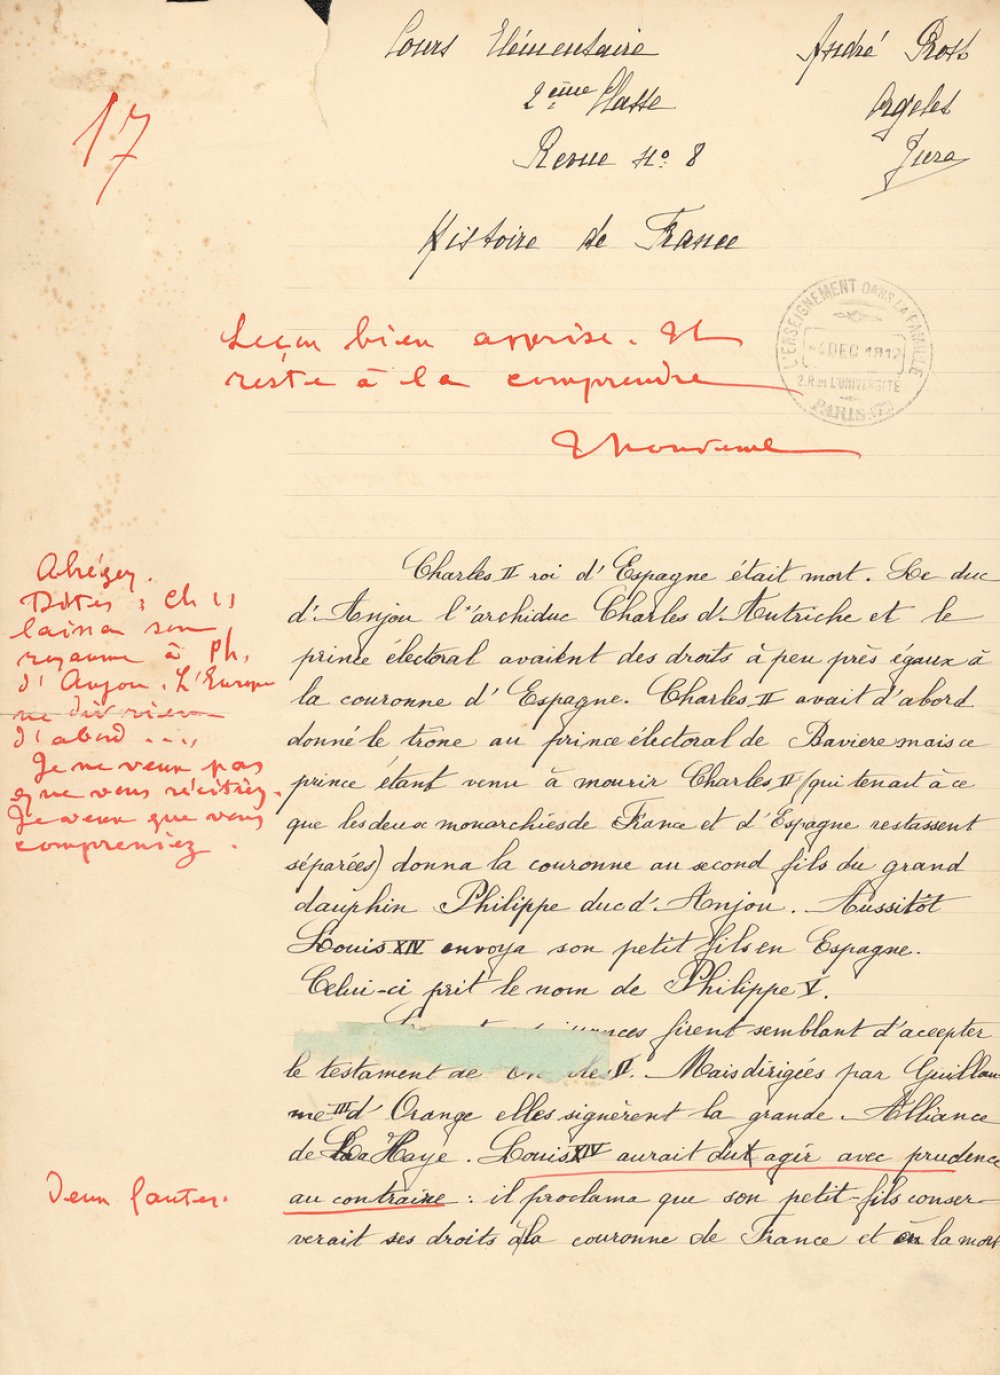 Cours Elémentaire
André Prost
2ème Classe
Orgelet
Revue No. 8
Jura
17
Histoire de France
L'ENSEIGNEMENT DANS LA FAMILLE
4 DEC 1912
2.R. de L'UNIVERSITÉ
PARIS
Leçon bien apprise. Il
reste à la comprendre
Abrégez.
Dites : Ch II
laissa son
royaume à Ph.
d'Anjou. L'Europe
ne dit rien
d'abord ....
Je ne veux pas
que vous récitiez.
Je veux que vous
compreniez.
Charles II roi d'Espagne était mort. Le duc
d'Anjou l'archiduc Charles d'Autriche et le
prince électoral avaient des droits à peu près égaux à
la couronne d'Espagne. Charles II avait d'abord
donné le trône au prince électoral de Baviere mais ce
prince étant venu à mourir Charles II (qui tenait à ce
que les deux monarchies de France et d'Espagne restassent
séparées) donna la couronne au second fils du grand
dauphin Philippe duc d'Anjou. Aussitôt
Louis XIV envoya son petit fils en Espagne.
Celui-ci prit le nom de Philippe V.
firent semblant d'accepter
le testament de II. Mais dirigées par Guillau
me III d'Orange elles signèrent la grande Alliance
de La Haye. Louis XIV aurait dut agir avec prudence
au contraire : il proclama que son petit-fils conser-
verait ses droits à la couronne de France et à la mort
Deux fautes.